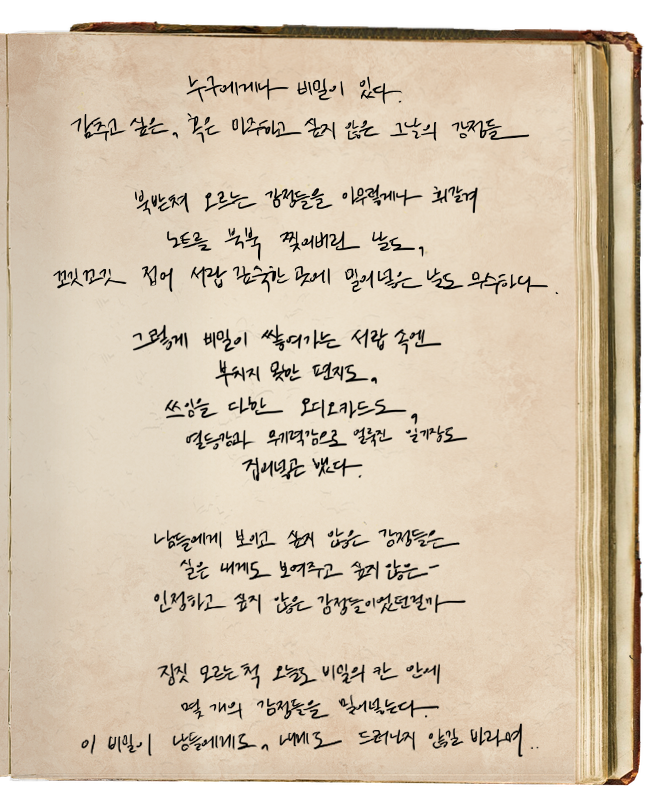 누구에게나 비밀이 있다.
감추고 싶은, 혹은 마주하고 싶지 않은 그날의 감정들
북받쳐 오르는 감정들을 아무렇게나 휘갈겨
노트를 북북 찢어버린 날도,
꼬깃꼬깃 접어 서랍 깊숙한 곳에 밀어넣은 날도 무수하다.
그렇게 비밀이 쌓여가는 서랍 속엔
부치지 못한 편지도,
쓰임을 다한 오디오카드도,
열등감과 무기력감으로 얼룩진 일기장도
집어넣곤 했다.
남들에게 보이고 싶지 않은 감정들은
실은 내게도 보여주고 싶지 않은-
인정하고 싶지 않은 감정들이었던걸까
짐짓 모르는 척 오늘도 비밀의 칸 안에
몇 개의 감정들을 밀어넣는다.
이 비밀이 남들에게도, 내게도 드러나지 않길 바라며..